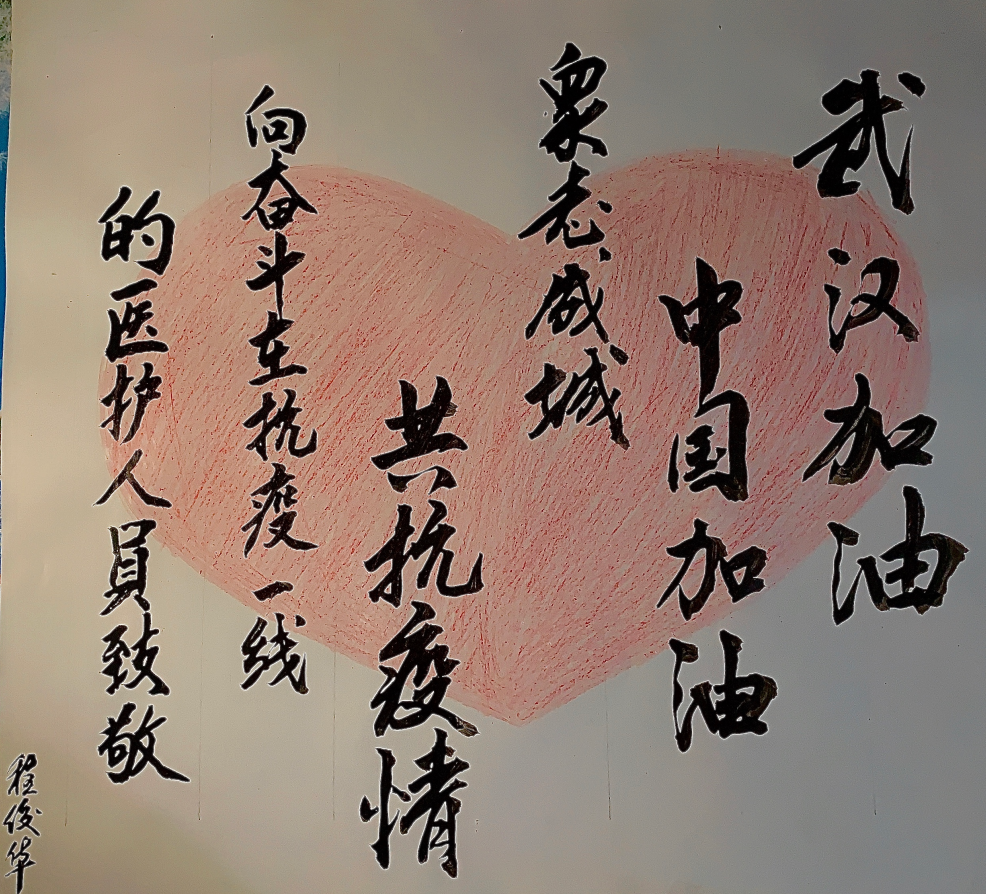 武汉加油
中国加油
衆志成城
共抗疫情
向奋斗在抗疫一线
的医护人員致敬
程俊华